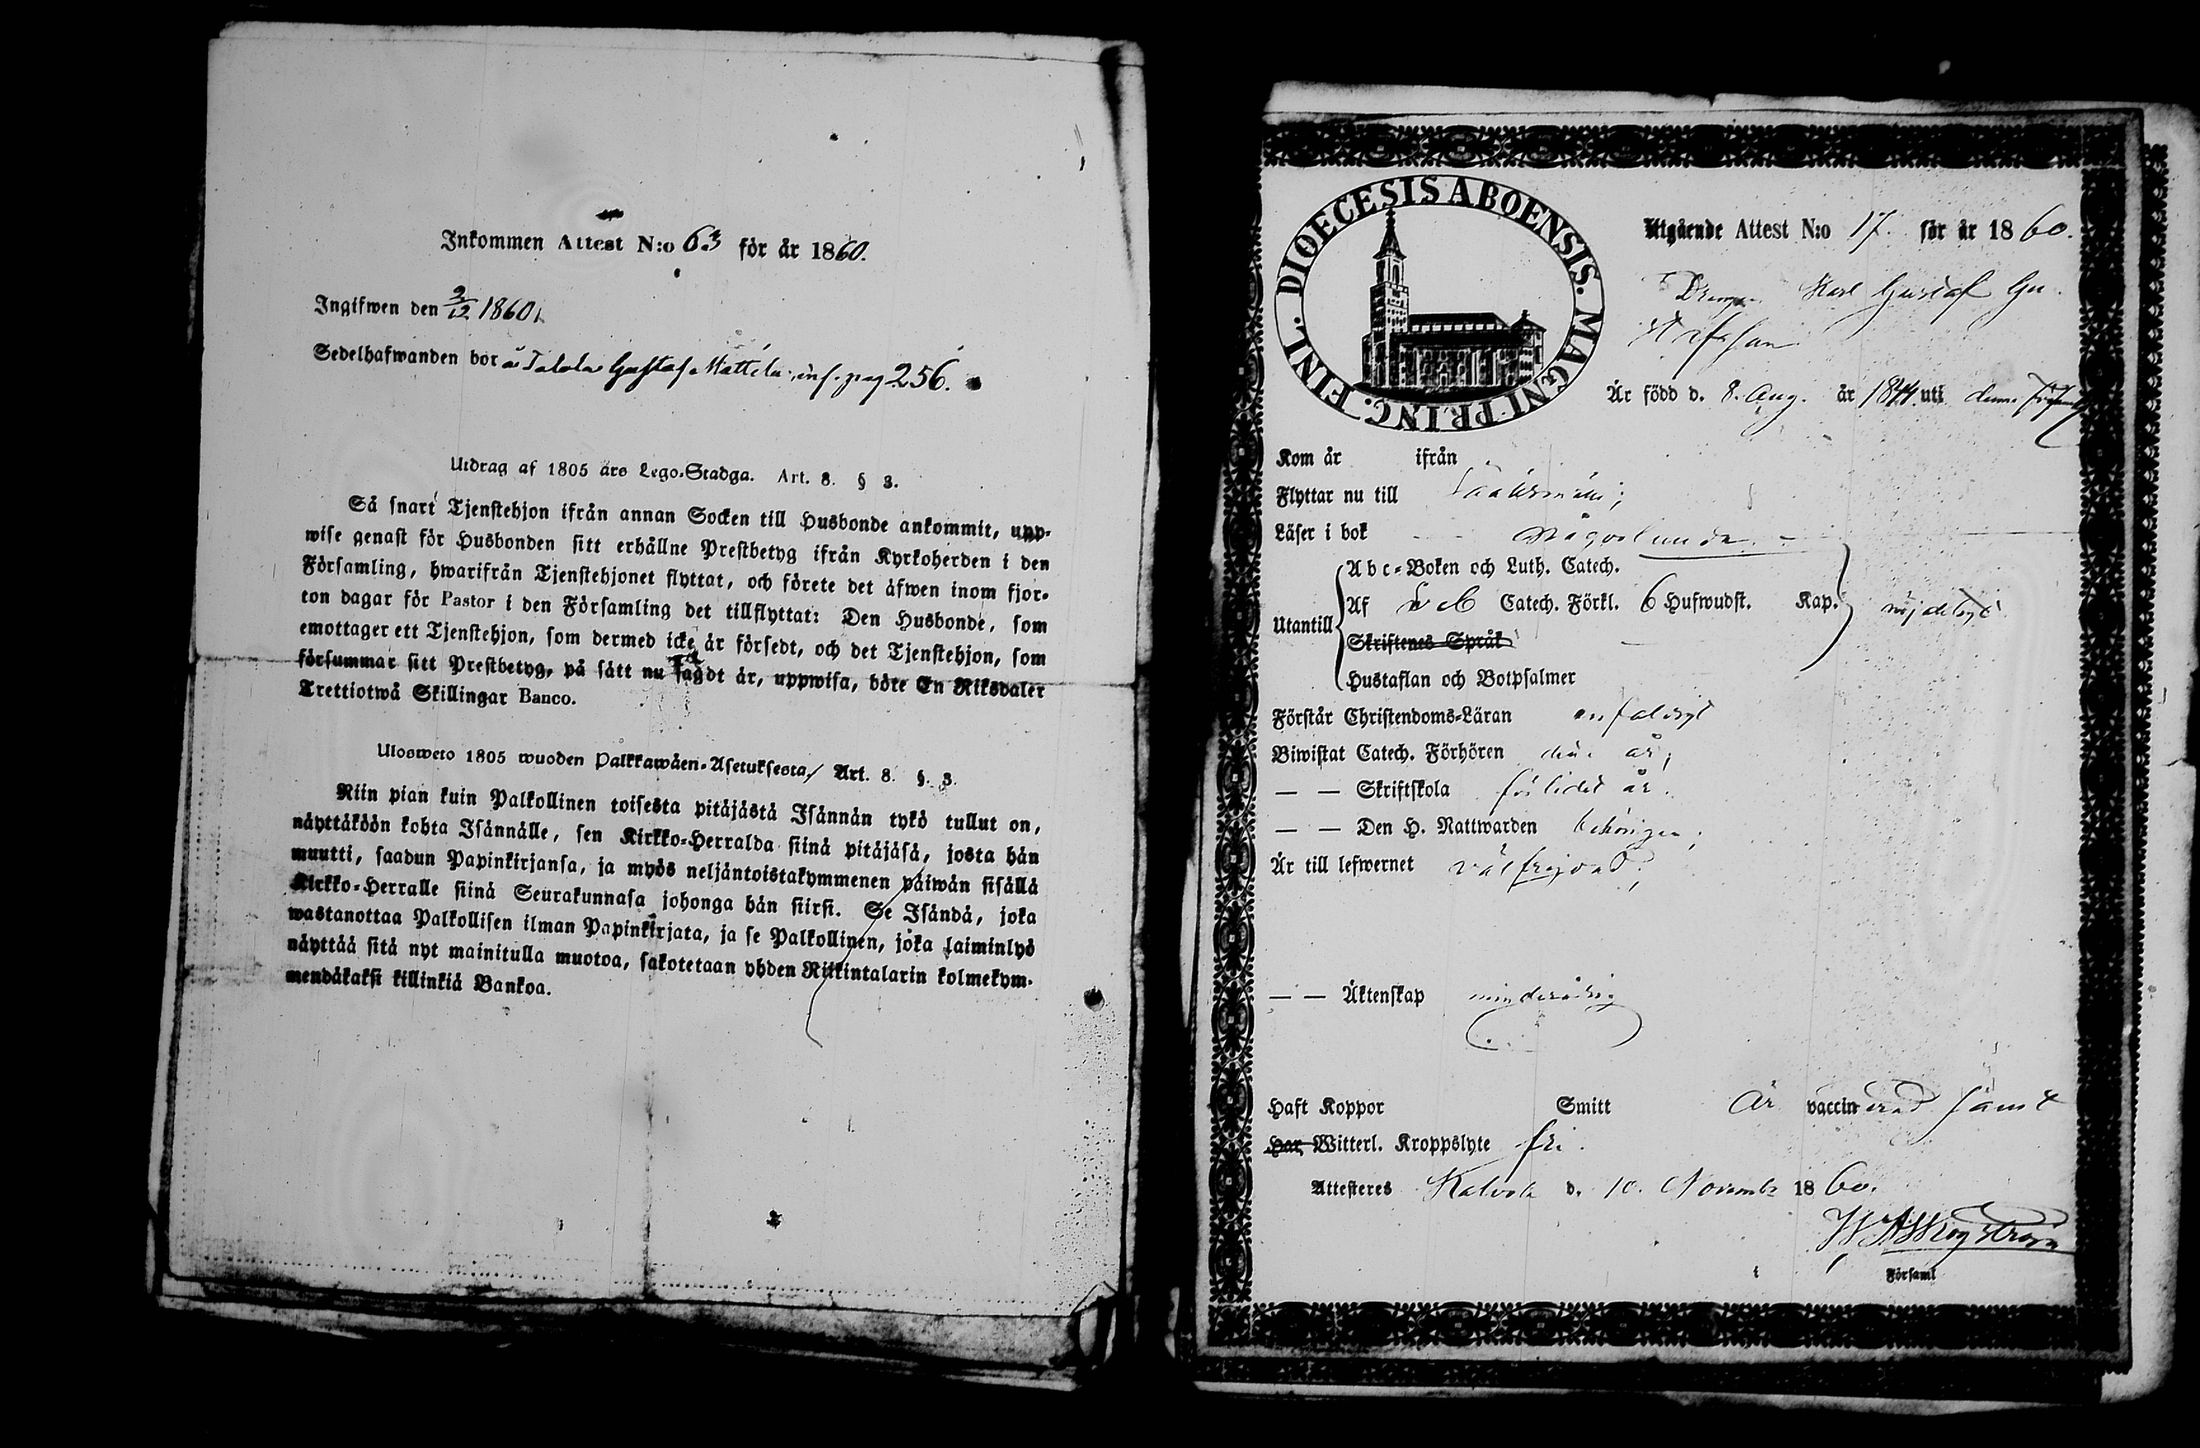 Inkommen Attest N:o 63 för år 1860.
Ingifwen den 2/12 1860
Sedelhafwanden bor å Talola Gustaf Mattila, inf. pag 256.
Utdrag af 1805 års Lego-Stadga. Art. 8. § 3.
Så snart Tjenstehjon ifrån annan Socken till Husbonde ankommit, upp-
wise genast för Husbonden sitt erhållne Prestbetyg ifrån Kyrkoherden i den
Församling, hwarifrån Tjenstehjonet flyttat, och förete det äfwen inom fjor-
ton dagar för Pastor i den Församling det tillflyttat: Den Husbonde, som
emottager ett Tjenstehjon, som dermed icke är försedt, och det Tjenstehjon, som
försummar sitt Prestbetyg, på sätt nu sagdt är, uppwisa, böte En Riksdaler
Trettiotwå Skillingar Banco.
Ulosweto 1805 wuoden Palkkawäen-Asetuksesta, Art. 8. §. 3.
Niin pian kuin Palkollinen toisesta pitäjästä Isännän tykö tullut on,
näyttäköön kohta Isännälle, sen Kirkko-Herralda siinä pitäjäsä, josta hän
muutti, saadun Papinkirjansa, ja myös neljäntoistakymmenen päiwän sisällä
Kirkko-Herralle siinä Seurakunnasa johonga hän siirsi. Se Isändä, joka
wastanottaa Palkollisen ilman Papinkirjata, ja se Palkollinen, joka laiminlyö
näyttää sitä nyt mainitulla muotoa, sakotetaan yhden Riikintalarin kolmekym-
mendäkaksi killinkiä Bankoa.
DIOECESIS ABOENSIS. MAGNI PRINC. FINL.
Utgående Attest N:o 17. för år 1860.
Drengen Karl Gustaf Gu-
stafsson
Är född d. 8. Aug. år 1844 uti denna församl
Kom år ifrån
Flyttar nu till Sääksmäki;
Läser i bok någorlunda.
Utantill
Abc-Boken och Luth. Catech.
Af Catech. Förkl. 6 Hufwudst. Kap. nöjeligt
Skriftenes Språk
Hustaflan och Botpsalmer
Förstår Christendoms-Läran enfaldigt
Biwistat Catech. Förhören detta år;
— — Skriftskola förlidet år.
— — Den H. Nattwarden behörigen;
Är till lefwernet välfrejdad;
— — Äktenskap minderårig
Haft Koppor Smitt Är vaccinerad samt
Har Witterl. Kroppslyte fri.
Attesteres Kalvola d. 10. Novembr 1860.
Församl